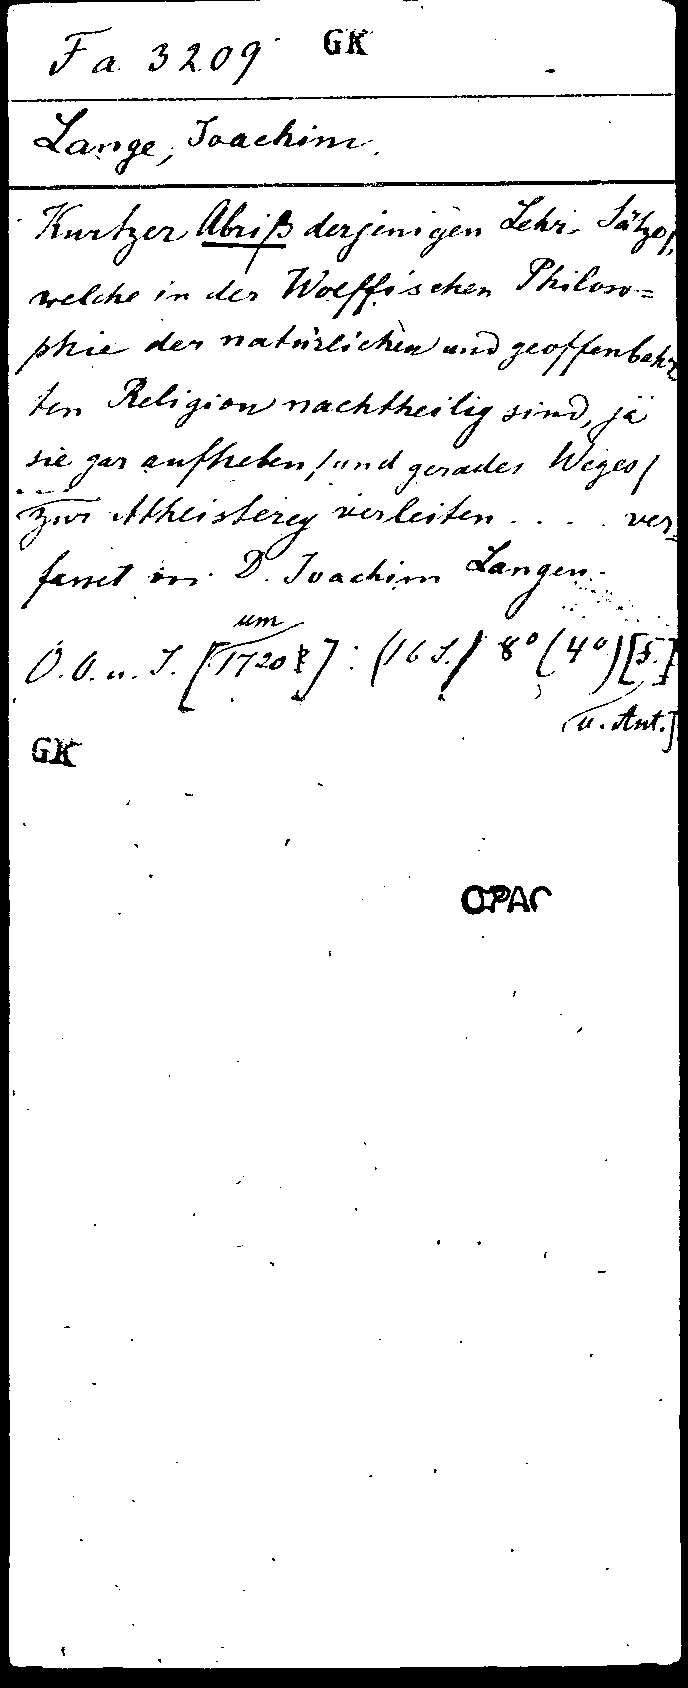 Fa 3209 GK
Lange, Joachim.
Kurtzer Abriß derjenigen Lehr-Sätze/,
welche in der Wolffischen Philoso=
phie der natürlichen und geoffenbahr
ten Religion nachtheilig sind, ja
sie gar aufheben/und gerades Weges/
zur Atheisterey verleiten . . . . ver=
fasset von D. Joachim Langen.
um
O.O.u.J. [1720?] : (16 S.) 8° (4°) [S.]
u. Ant.]
GK
OPAC